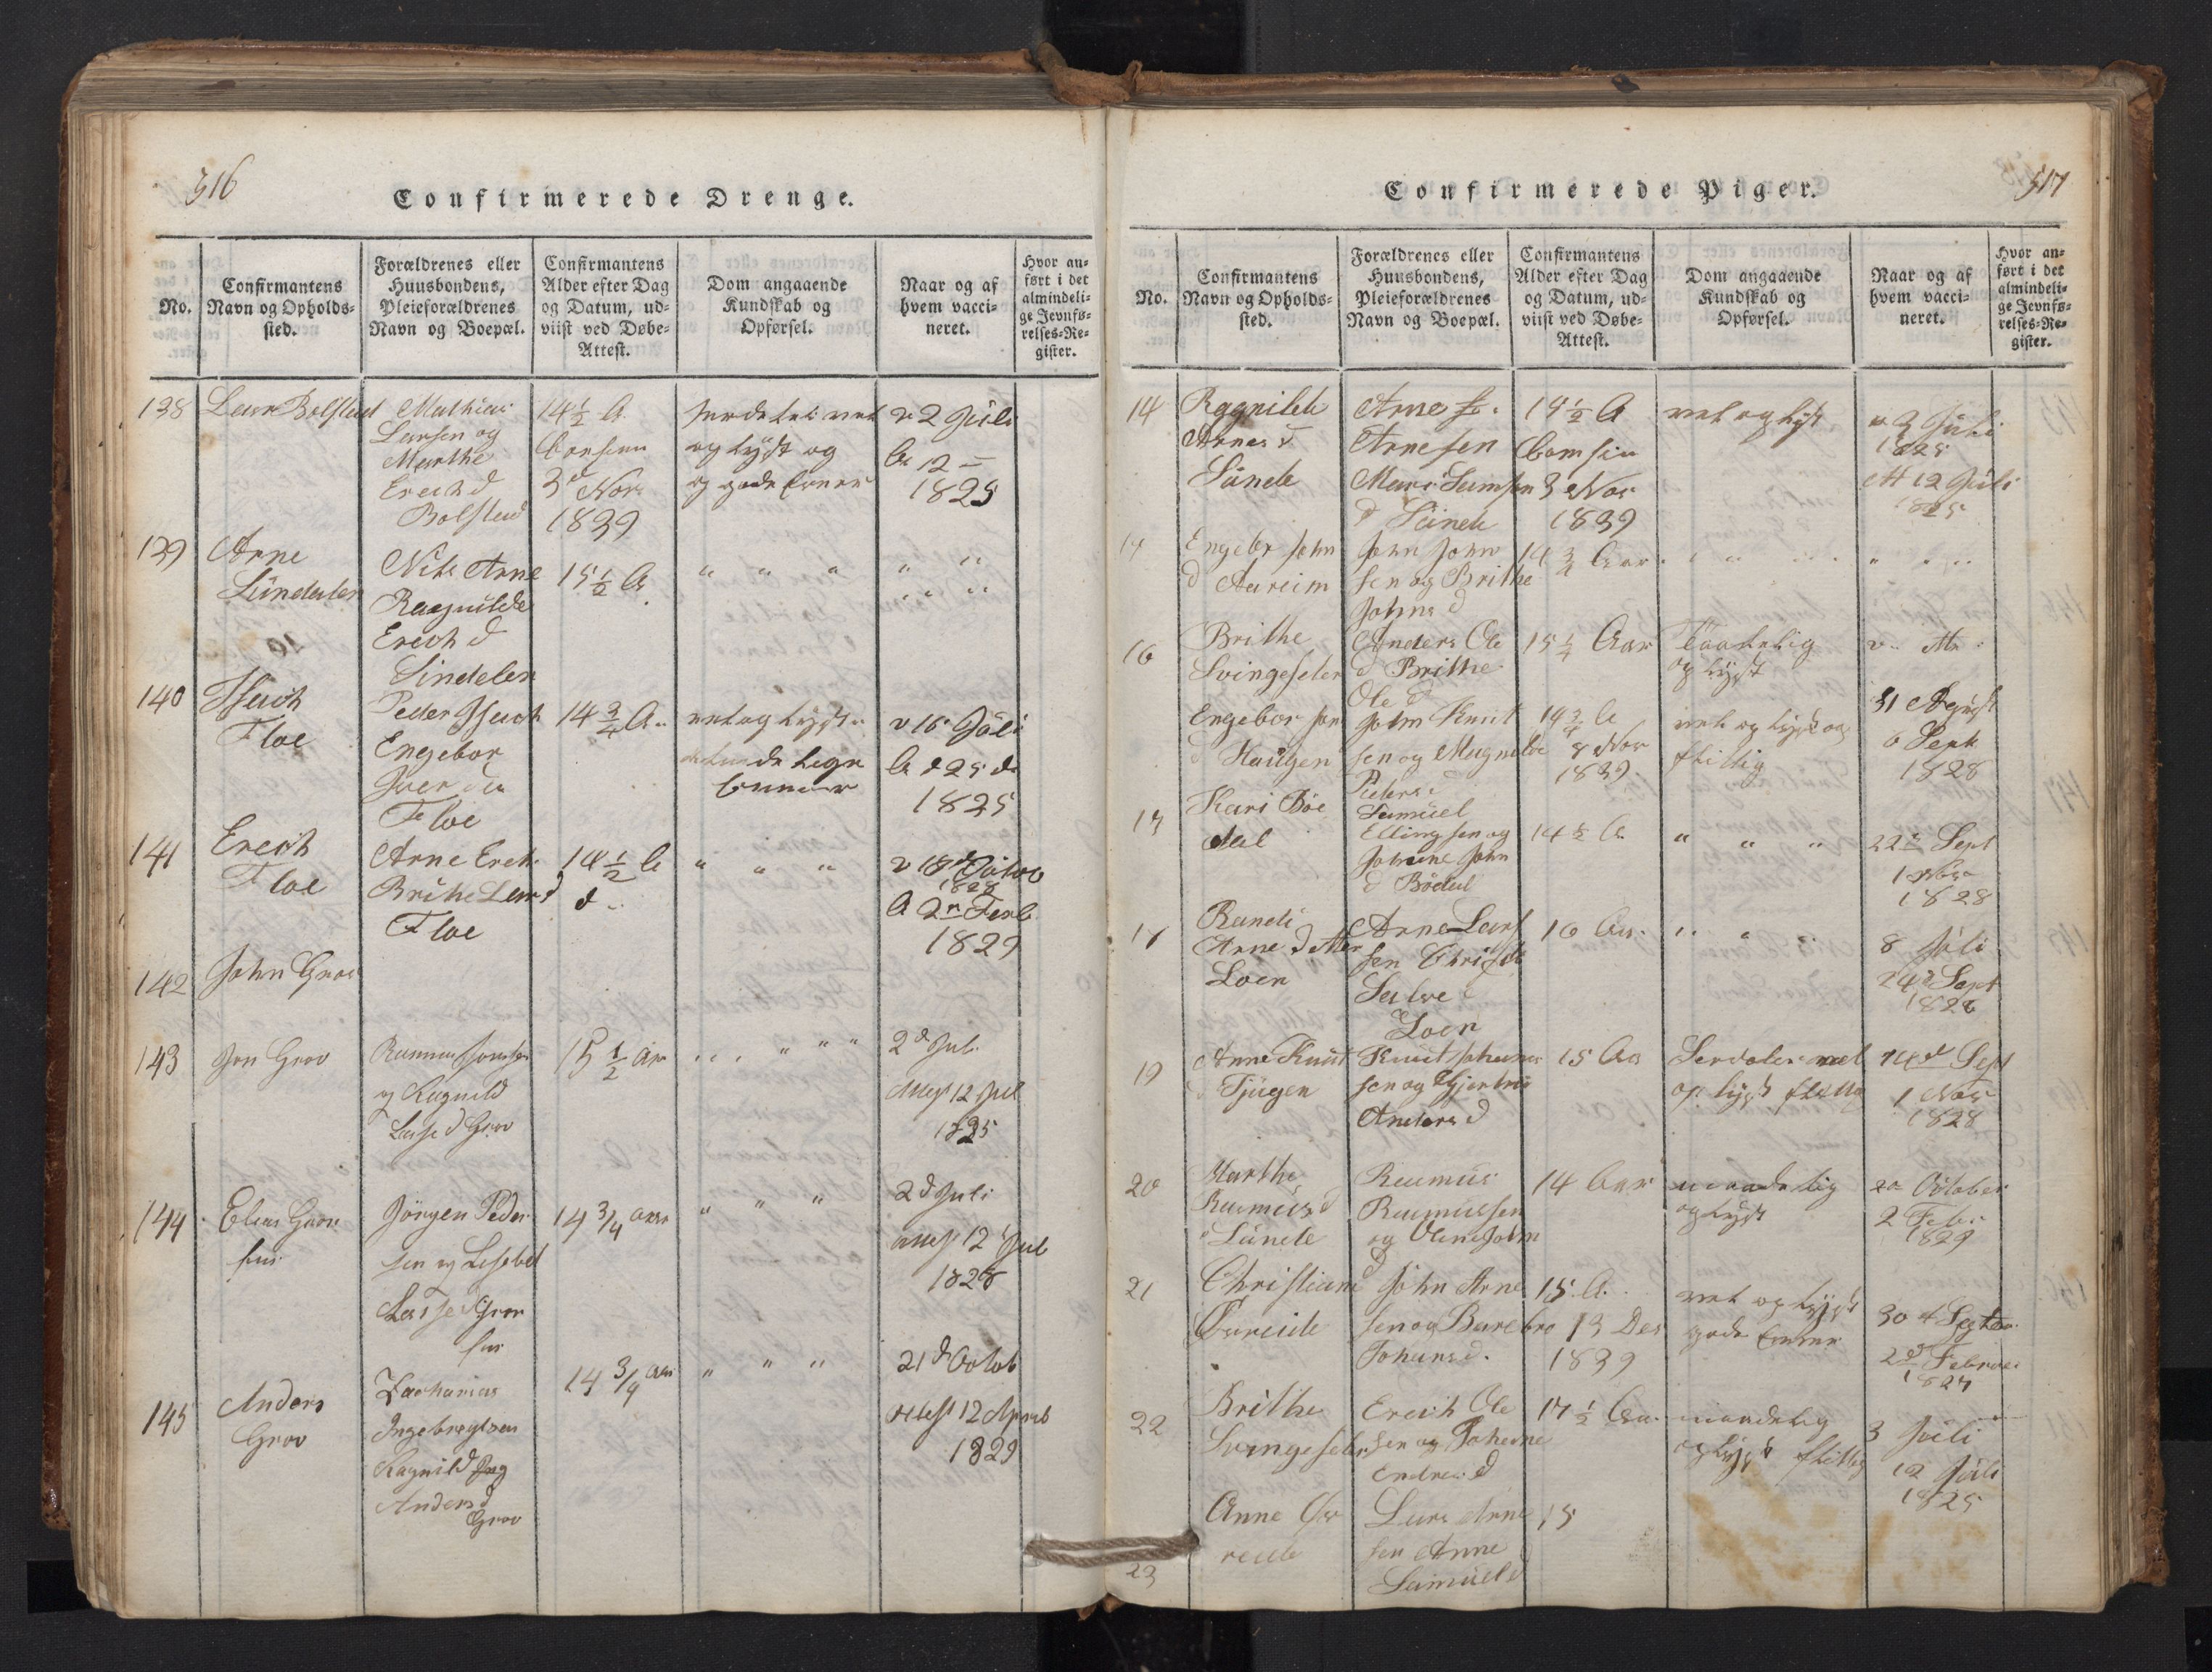 316
Confirmerede Drenge.
No.
Confirmantens
Navn og Opholds-
sted.
Forældrenes eller
Huusbondens,
Pleieforældrenes
Navn og Boepæl.
Confirmantens
Alder efter Dag
og Datum, ud-
viist ved Døbe-
Attest.
Dom angaaende
Kundskab og
Opførsel.
Naar og af
hvem vacci-
neret.
Hvor an-
ført i det
almindeli-
ge Jevnfø-
relses-Re-
gister.
138
Lars Bolstad
Mathias
Larsen og
Marthe
Erich d
Bolstad
14 1/2 A
3d Nov
1839
og lyst og
og gode
v 2 Juli
A 12 —
1825
139
Arne
Sündalen
Nils Arne
Ragnilde
Erich d
Sindalen
15 1/2 A
" " "
" "
" "
140
Isach
Floe
Peder Isach
Engebor
Iver d
Floe
14 3/4 A
vel og lyst
v 16 Juli
A d 25 d
1825
141
Erich
Floe
Arne Erich
Brithe Lars d
Floe
14 1/2 A
d
" " "
v 18
1828
A 2n Feb
1829
142
John Grov
143
Jon Grov
Rasmus
og Ragnild
Lasse d Grov
15 1/2 Aar
" " " "
2d Jul.
Attest 12 Jul
1825
144
Elias Grov
Jörgen Peder
sen og Lisebet
Lasse d
14 3/4 aar
" " "
2d Juli
attest 12 Jul
1828
145
Anders
Grov
Zacharias
Ingebregtsen
Ragnild
Anders d
Grov
14 3/4 aar
" " "
21d Octob
Attest 12 April
1829
517
Confirmerede Piger.
No.
Confirmantens
Navn og Opholds-
sted.
Forældrenes eller
Huusbondens,
Pleieforældrenes
Navn og Boepæl.
Confirmantens
Alder efter Dag
og Datum, ud-
viist ved Døbe-
Attest.
Dom angaaende
Kundskab og
Opførsel.
Naar og af
hvem vacci-
neret.
Hvor an-
ført i det
almindeli-
ge Jevnfø-
relses-Re-
gister.
14
Ragnilde
Arnes d
Sünde
Arne
Arnesen
Mari Samson
d Sünde
14 1/2 A
3 Nov
1839
vel og lyst
v 2 Juli
1825
At 12 Juli
1825
Engebr John
d Aareim
John John
sen og Brithe
Johns d
14 3/4 Aar
16
Brithe
Svingesetr
Anders Ole
d Brithe
Ole d
15 1/4 Aar
Taalelig
oplyst
Engebor Jon
d Haugen
John Knut
sen og Magnilde
Peders d
14 3/4 A
8 Nov
1839
vel oplyst og
flittig
31 August
6 Sept
1828
17
Kari Böe
dal
Samüel
Ellingsen og
Johane John
d Bödal
14 1/2 A
" " "
22 Sept
1 Nov
1828
18
Randi
Arne d
Loen
Arne Lars
sen
Loen
16 Aar
8 Juli
24d Sept
1828
19
Anne Knut
d Tjugen
Knut Johannes
sen og Gjertrü
Anders d
15 Aar
vel
oplyst flittig
14d Sept
1 Nov
1828
20
Marthe
Rasmus d
Sünde
Rasmus
Rasmussen
og Olene John
d
14 Aar
maadelig
oplyst
October
2 Febr
1829
21
Christiane
Öureide
John Arne
sen og Barebro
Johans d.
15 A.
13 Des
1839
vel oplyst
gode Evner
30 Septem
2d Februar
22
Brithe
Svingesetr
Erich Ole
sen og Johanne
Endres d
17 1/2 Aar
maadelig
oplyst flittig
3 Juli
12 Juli
1825
23
Anne Öu
reide
Lars Arne
sen Anne
Samüel d
15